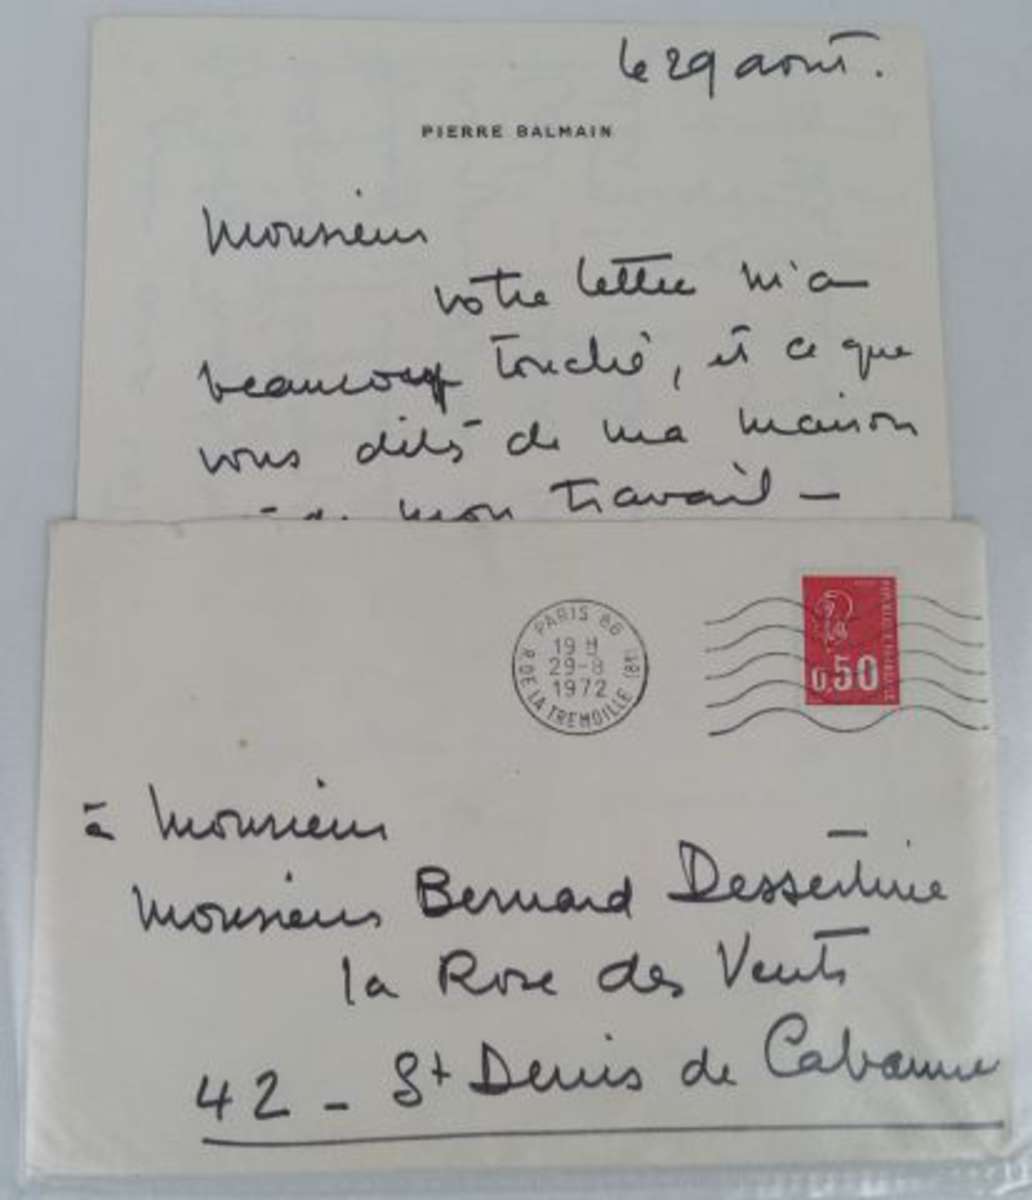 le 29 août.
PIERRE BALMAIN
Monsieur
votre lettre m'a
beaucoup touché, et ce que
vous dites de ma maison
de mon travail –
PARIS 86
19 H
29-8
1972
R. DE LA TREMOILLE (8E)
0,50
à Monsieur
Monsieur Bernard Dessertine
la Rose des Vents
42 - St Denis de Cabanne